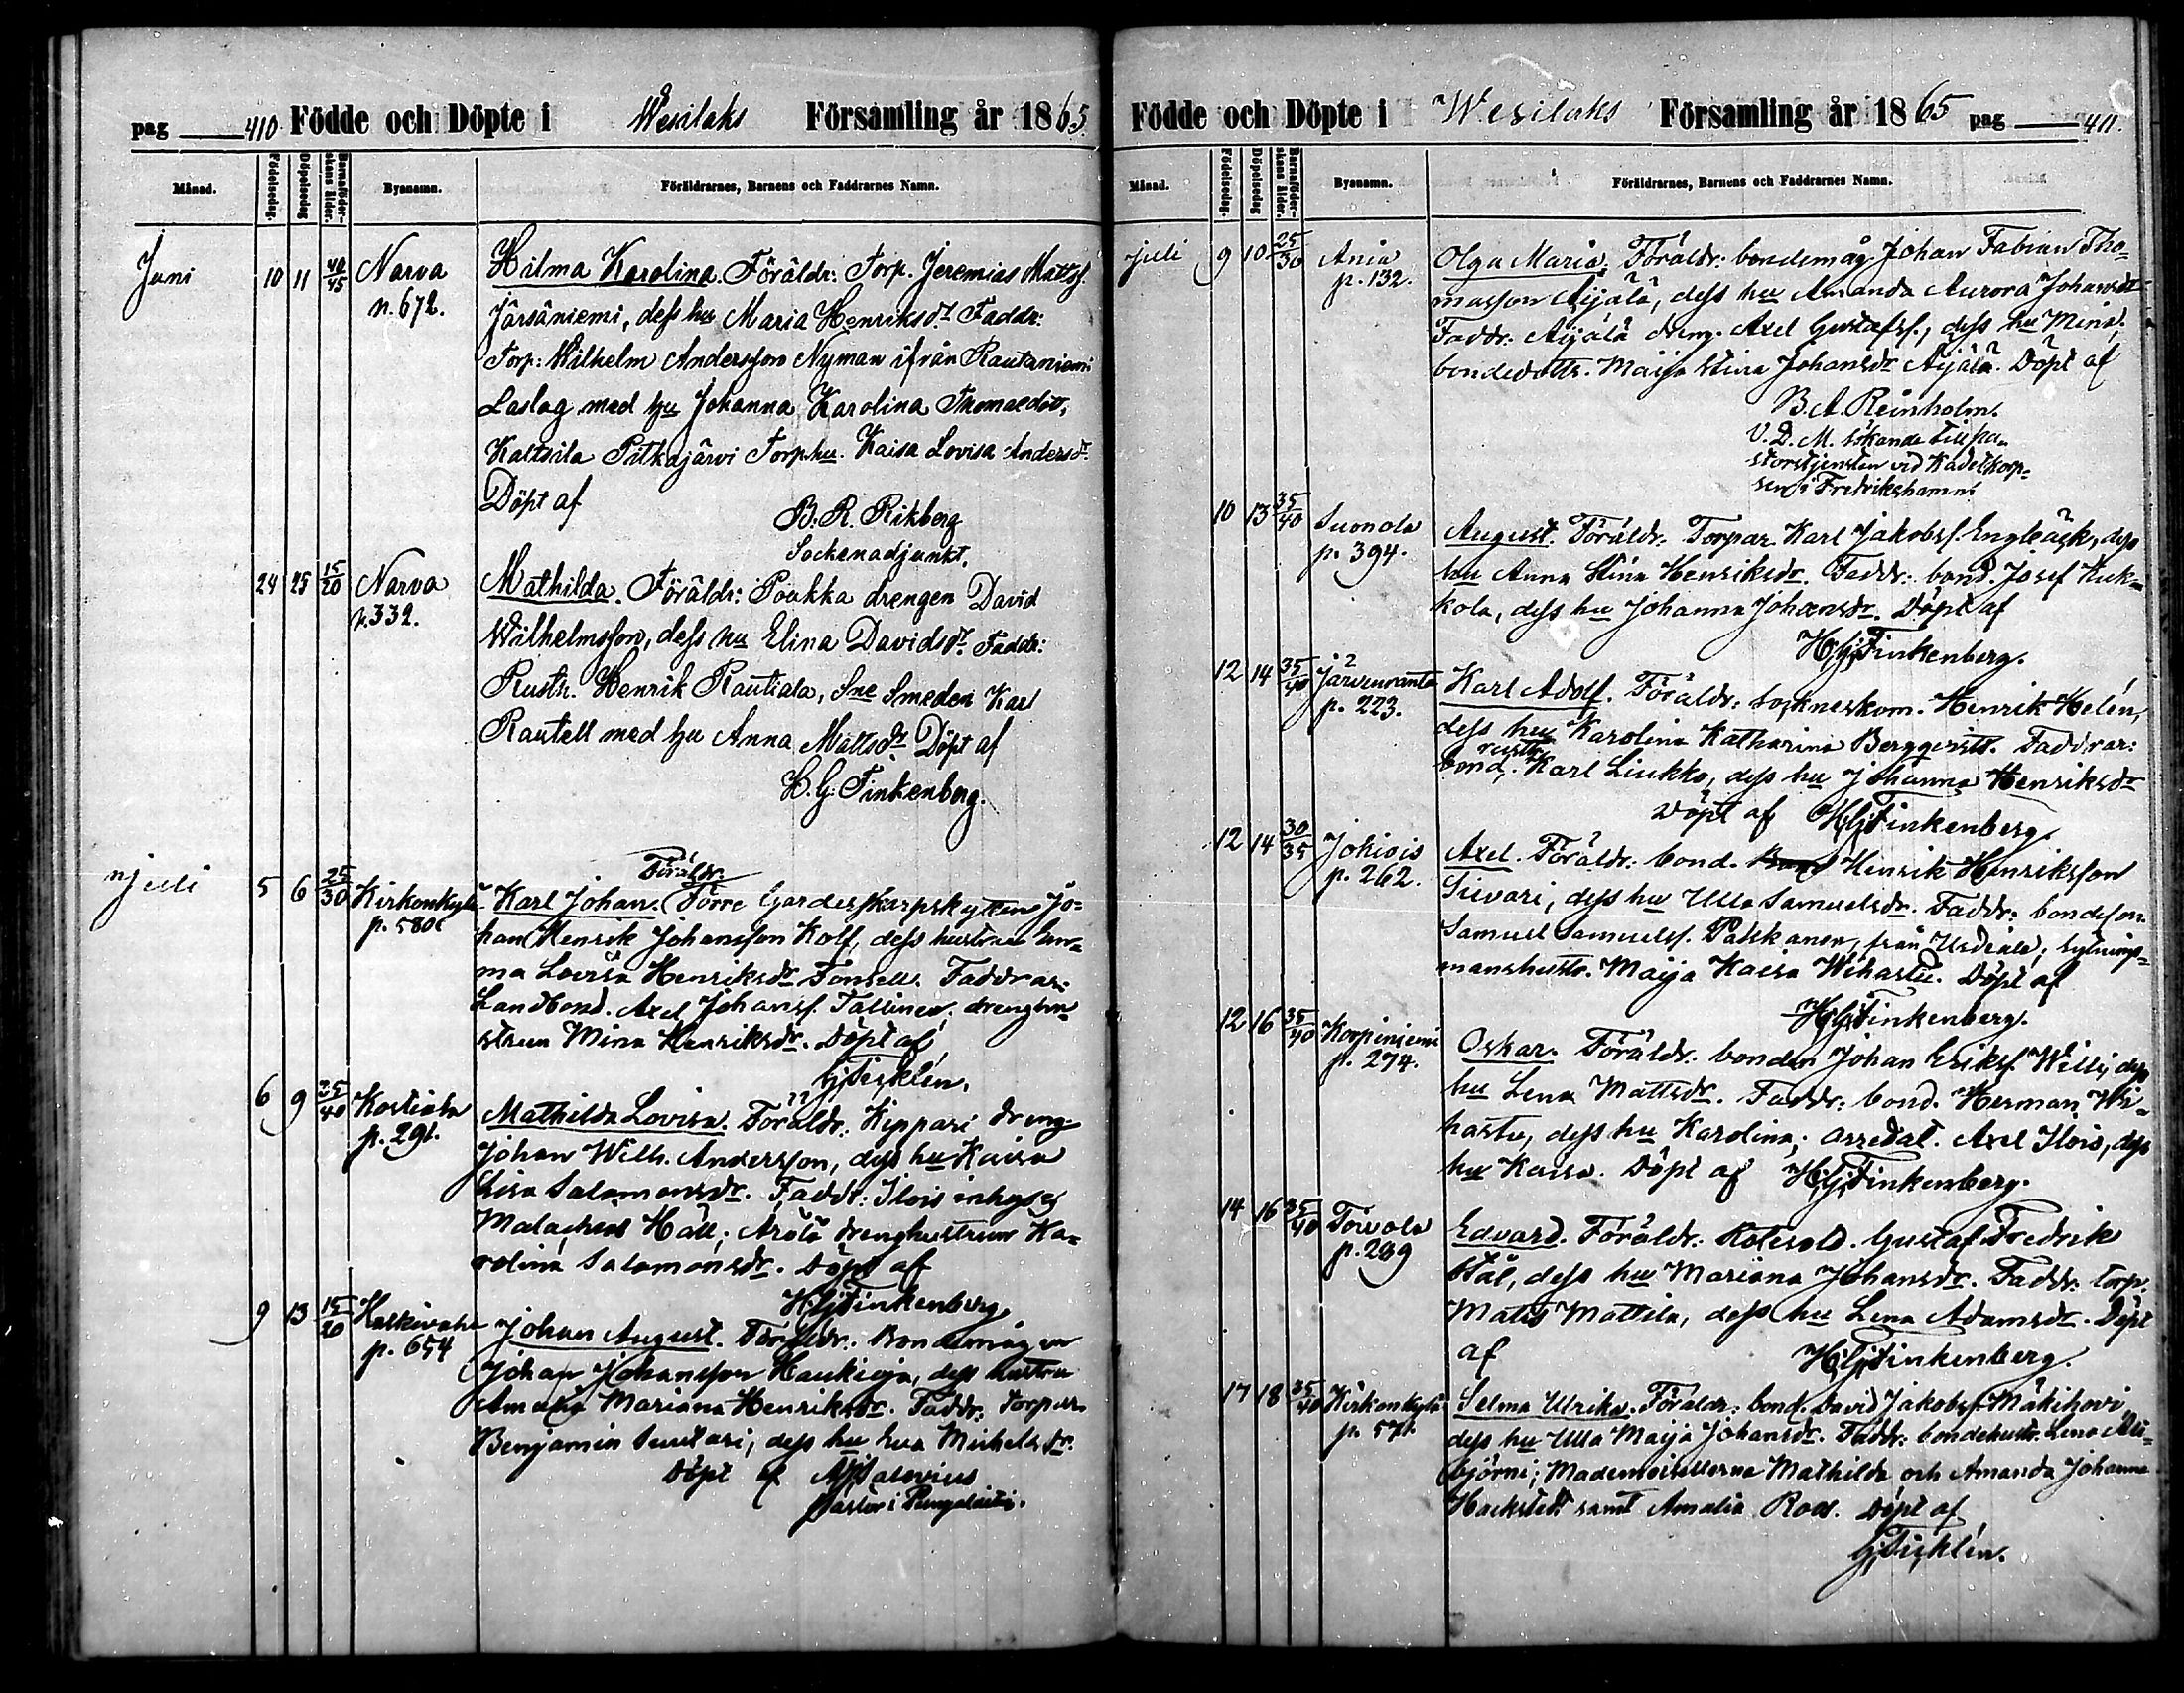 pag 410 Födde och Döpte i Wesilaks Församling år 1865
Månad. Födelsedag. Döpelsedag Barnaföderskans ålder. Byanamn. Föräldrarnes, Barnens och Faddrarnes Namn.
Juni 10 11 40/45 Narva Hilma Karolina. Föräldr: Torp. Jeremias Mattss.
n. 672. Järsäniemi, dess hu Maria Henriksdr. Faddr:
Torp: Wilhelm Andersson Nyman ifrån Rautaniemi
Laslag med hu Johanna Karolina Thomasdot,
Kaltsila Pitkäjärvi Torphu. Kaisa Lovisa Andersdr.
Döpt af
B. R. Rikberg
Sockenadjunkt.
24 25 15/20 Narva Mathilda. Föräldr: Poukka drengen David
p. 332. Wilhelmsson, dess hu Elina Davidsdr. Faddr:
Rusth. Henrik Rautiala, Sne Smeden Karl
Rautell med hu Anna Mattsdr. Döpt af
H. G. Finkenberg.
Föräldr.
juli 5 6 25/30 Kirkonkylä Karl Johan. Förre Gardesskarpskytten Jo-
p. 580 han Henrik Johansson Kolf, dess hustru Em-
ma Lovisa Henriksdr Fonsell. Faddrar:
Landbond. Axel Johanss. Tallinen, drenghu-
strun Mina Henriksdr. Döpt af
6 9 35/40 Kostiala Mathilda Lovisa. Föräldr. Kippari dreng
p. 291. Johan Wilh. Andersson, dess hu Kaisa
Lisa Salomonsdr. Faddr: Ilois inhyses
Malachias Häll; Arölä drenghustrun Ka-
rolina Salomonsdr. Döpt af
H. G. Finkenberg
9 13 15/20 Johan August. Föräldr. Bondemågen
p. 654 Johan Johansson Haukioja, dess hustru
Amalia Mariana Henriksdr. Faddr: Torpar.
Benjamin Suutari, dess hu Eva Michelsdr.
Döpt af
Pastor i Pungalaitio.
Födde och Döpte i Wesilaks Församling år 1865 pag 411.
Månad. Födelsedag. Döpelsedag Barnaföderskans ålder. Byanamn. Föräldrarnes, Barnens och Faddrarnes Namn.
juli 9 10 25/30 Ania Olga Maria. Föräldr: bondemåg Johan Fabian Tho-
p. 132. masson Äijälä, dess hu Amanda Aurora Johansdr
Faddr: Äijälä dreng. Axel Gustafss., dess hu Mina,
bondedottr. Maija Stina Johansdr Äijälä. Döpt af
B. A. Reinholm.
V. D. M. sökande till pa-
storstjensten vid Kadetkorp-
sen i Fredrikshamn
10 13 35/40 Suonola August. Föräldr. Torpar. Karl Jakobss. Engleäsk, dess
p. 394. hu Anna Stina Henriksdr. Faddr: bond. Josef Kuk-
kola, dess hu Johanna Johansdr. Döpt af
H. G. Finkenberg.
12 14 35/40 Järvenranta Karl Adolf. Föräldr: Sockneskom. Henrik Helén,
p. 223. dess hu Karolina Katharina Bergqvist. Faddrar:
rusth.
bond. Karl Liukko, dess hu Johanna Henriksdr
Döpt af H. G. Finkenberg.
12 14 30/35 Johiois Axel. Föräldr: bond. Henrik Henriksson
p. 262. Sievari, dess hu Ulla Samuelsdr. Faddr: bondeson.
Samuel Samuelss. Paskanen, från Usdiala; sytnings-
manshustr. Maija Kaisa Wihastu. Döpt af
H. G. Finkenberg.
12 16 35/40 Korpiniemi Oskar. Föräldr: bonden Johan Erikss. Willi, dess
p. 274. hu Lena Mattsdr. Faddr: bond. Herman Wi-
hastu, dess hu Karolina; arredat. Axel Ilois, dess
hu Kaisa. Döpt af H. G. Finkenberg.
14 16 35/40 Toivola Edvard. Föräldr: Rotesold. Gustaf Fredrik
p. 289 Stål, dess hu Mariana Johansdr. Faddr: torp.
Matts Mattila, dess hu Lena Adamsdr. Döpt
af H. G. Finkenberg.
17 18 35/40 Kirkonkylä Selma Ulrika. Föräldr: bond. David Jakobss. Mäkihovi
p. 571. dess hu Ulla Maija Johansdr. Faddr: bondehustr. Lena Ali-
björni; Mademoisellerna Mathilda och Amanda Johanna
Hackstedt samt Amalia Roos. Döpt af